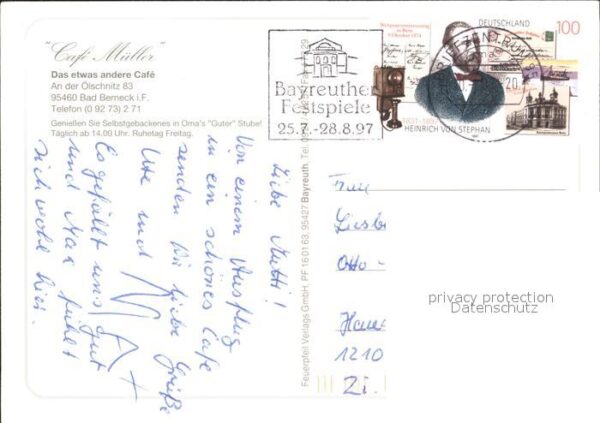 "Café Müller"
Das etwas andere Café
An der Ölschnitz 83
95460 Bad Berneck i.F.
Telefon (0 92 73) 2 71
Genießen Sie Selbstgebackenes in Oma's "Guter" Stube!
Täglich ab 14.00 Uhr. Ruhetag Freitag.
Liebe Mutti!
Von einem Ausflug
in ein schönes Cafe
senden Dir liebe Grüße
Ute und
Es gefällt uns gut
und Max fühlt
sich wohl hier.
Feuerpfeil Verlags GmbH, PF 16 01 63, 95427 Bayreuth, Tel.
Bayreuther
Festspiele
25.7.-28.8.97
DEUTSCHLAND
100
BRIEFZENTRUM
1831-1897
HEINRICH VON STEPHAN
Frau
Otto -
1210
privacy protection
Datenschutz